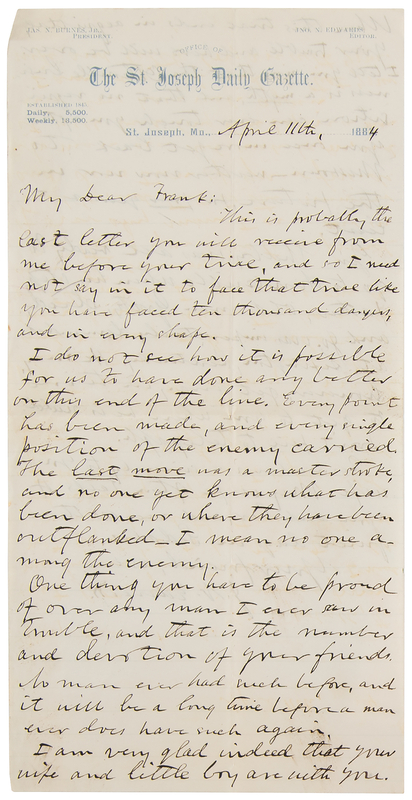 JAS. N. BURNES, JR.,
PRESIDENT.
JNO. N. EDWARDS,
EDITOR.
OFFICE OF
The St. Joseph Daily Gazette.
ESTABLISHED 1845
Daily, 5,500.
Weekly, 10,500.
St. Joseph, Mo., April 11th, 1884
My Dear Frank:
This is probably the
last letter you will receive from
me before your trial, and so I need
not say in it to face that trial like
you have faced ten thousand dangers,
and in every shape.
I do not see how it is possible
for us to have done any better
on this end of the line. Every point
has been made, and every single
position of the enemy carried.
The last move was a master stroke,
and no one yet knows what has
been done, or where they have been
outflanked — I mean no one a-
mong the enemy.
One thing you have to be proud
of over any man I ever saw in
trouble, and that is the number
and devotion of your friends.
No man ever had such before, and
it will be a long time before a man
ever does have such again.
I am very glad indeed that your
wife and little boy are with you.